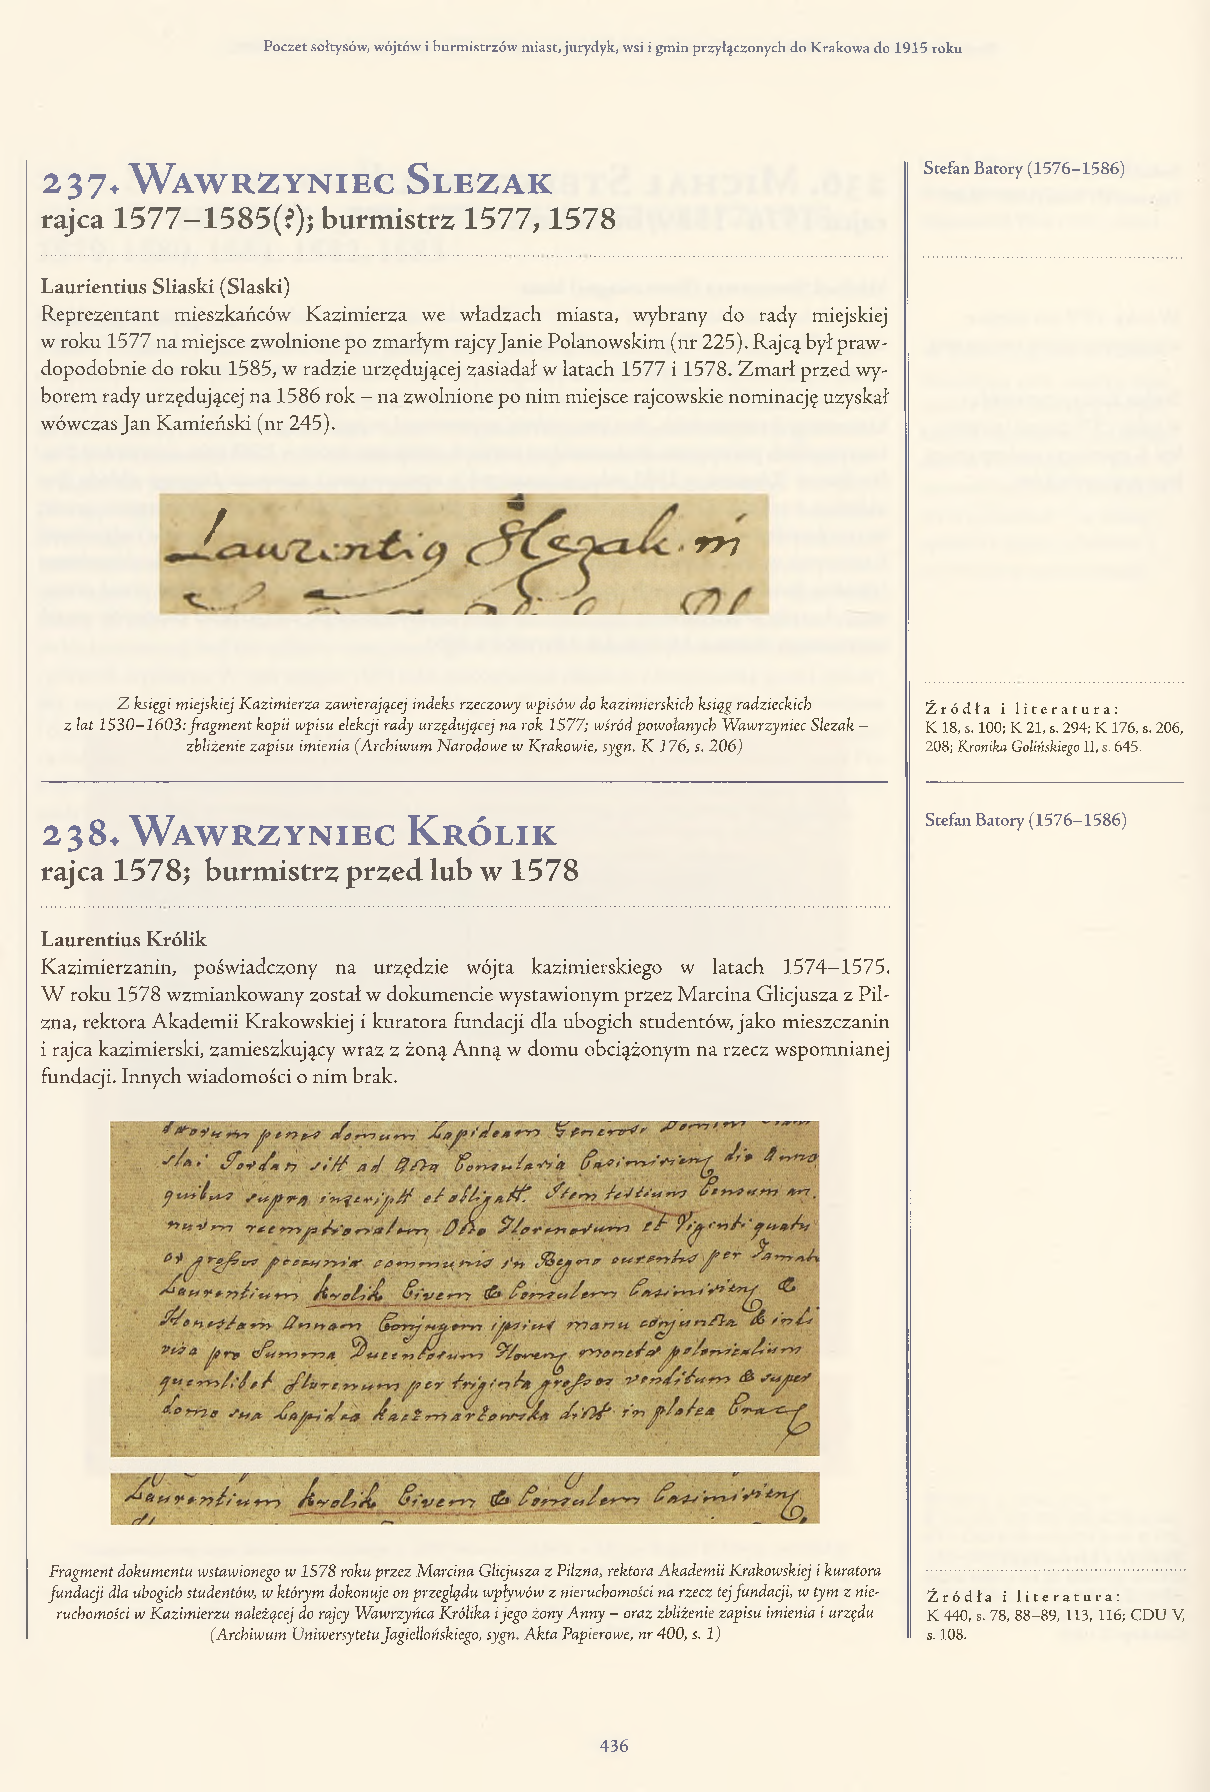 Poczet sołtysów, wójtów i burmistrzów miast, jurydyk, wsi i gmin przyłączonych do Krakowa do 1915 roku
237. Wawrzyniec Slezak
rajca 1577–1585(?); burmistrz 1577, 1578
Stefan Batory (1576–1586)
Laurientius Sliaski (Slaski)
Reprezentant mieszkańców Kazimierza we władzach miasta, wybrany do rady miejskiej
w roku 1577 na miejsce zwolnione po zmarłym rajcy Janie Polanowskim (nr 225). Rajcą był praw-
dopodobnie do roku 1585, w radzie urzędującej zasiadał w latach 1577 i 1578. Zmarł przed wy-
borem rady urzędującej na 1586 rok – na zwolnione po nim miejsce rajcowskie nominację uzyskał
wówczas Jan Kamieński (nr 245).
Slezak
Z księgi miejskiej Kazimierza zawierającej indeks rzeczowy wpisów do kazimierskich ksiąg radzieckich
z lat 1530–1603: fragment kopii wpisu elekcji rady urzędującej na rok 1577; wśród powołanych Wawrzyniec Slezak –
zbliżenie zapisu imienia (Archiwum Narodowe w Krakowie, sygn. K 176, s. 206)
Źródła i literatura:
K 18, s. 100; K 21, s. 294; K 176, s. 206,
208; Kronika Golińskiego II, s. 645.
238. Wawrzyniec Królik
rajca 1578; burmistrz przed lub w 1578
Stefan Batory (1576–1586)
Laurentius Królik
Kazimierzanin, poświadczony na urzędzie wójta kazimierskiego w latach 1574–1575.
W roku 1578 wzmiankowany został w dokumencie wystawionym przez Marcina Glicjusza z Pil-
zna, rektora Akademii Krakowskiej i kuratora fundacji dla ubogich studentów, jako mieszczanin
i rajca kazimierski, zamieszkujący wraz z żoną Anną w domu obciążonym na rzecz wspomnianej
fundacji. Innych wiadomości o nim brak.
penes domum Lapideam Generosi Domini
Jordan ad Acta Consularia die Anno
quibus supra et Item tertium Censum an
nuum reemptionalem Octo Florenorum et Viginti quatu
or grossos pecuniæ communis in Regno currentis per
Laurentium Krolik Civem & Consulem
Honestam Annam Conjugem ipsius manu conjuncta & indi
visa pro Summa Ducentorum monetæ polonicalium
quemlibet Florenum per triginta grossos venditum & super
domo sua Lapidea in platea
Laurentium Krolik Civem & Consulem
Fragment dokumentu wstawionego w 1578 roku przez Marcina Glicjusza z Pilzna, rektora Akademii Krakowskiej i kuratora
fundacji dla ubogich studentów, w którym dokonuje on przeglądu wpływów z nieruchomości na rzecz tej fundacji, w tym z nie-
ruchomości w Kazimierzu należącej do rajcy Wawrzyńca Królika i jego żony Anny – oraz zbliżenie zapisu imienia i urzędu
(Archiwum Uniwersytetu Jagiellońskiego, sygn. Akta Papierowe, nr 400, s. 1)
Źródła i literatura:
K 440, s. 78, 88–89, 113, 116; CDU V,
s. 108.
436